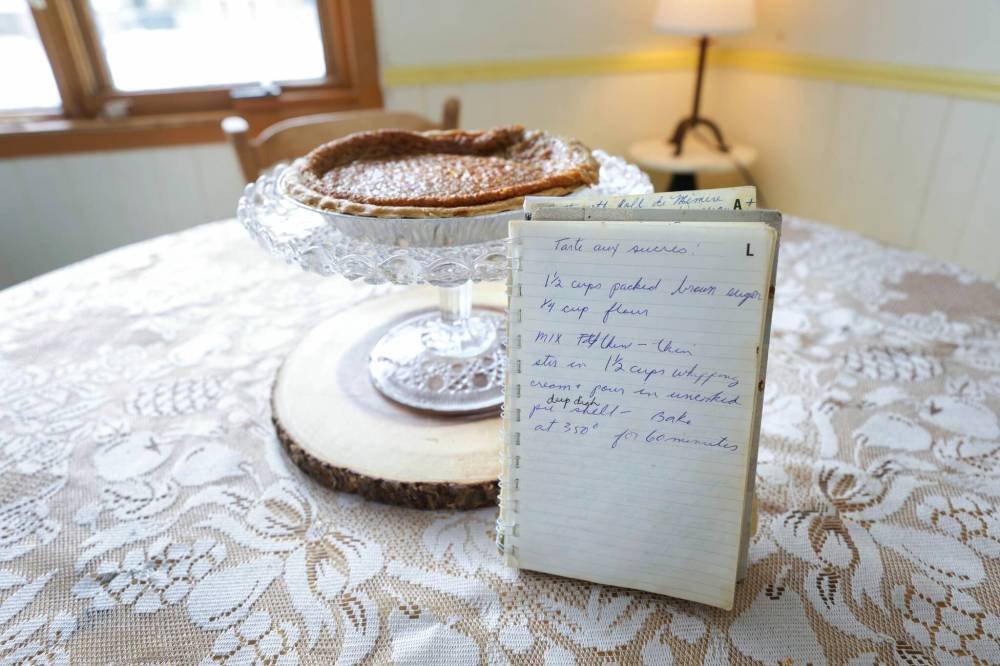 de Mémère
A+
L
Tarte aux sucres!
1½ cups packed brown sugar
¼ cup flour
MIX together - then
stir in 1½ cups whipping
cream + pour in uncooked
deep dish
pie shell - Bake
at 350° for 60 minutes